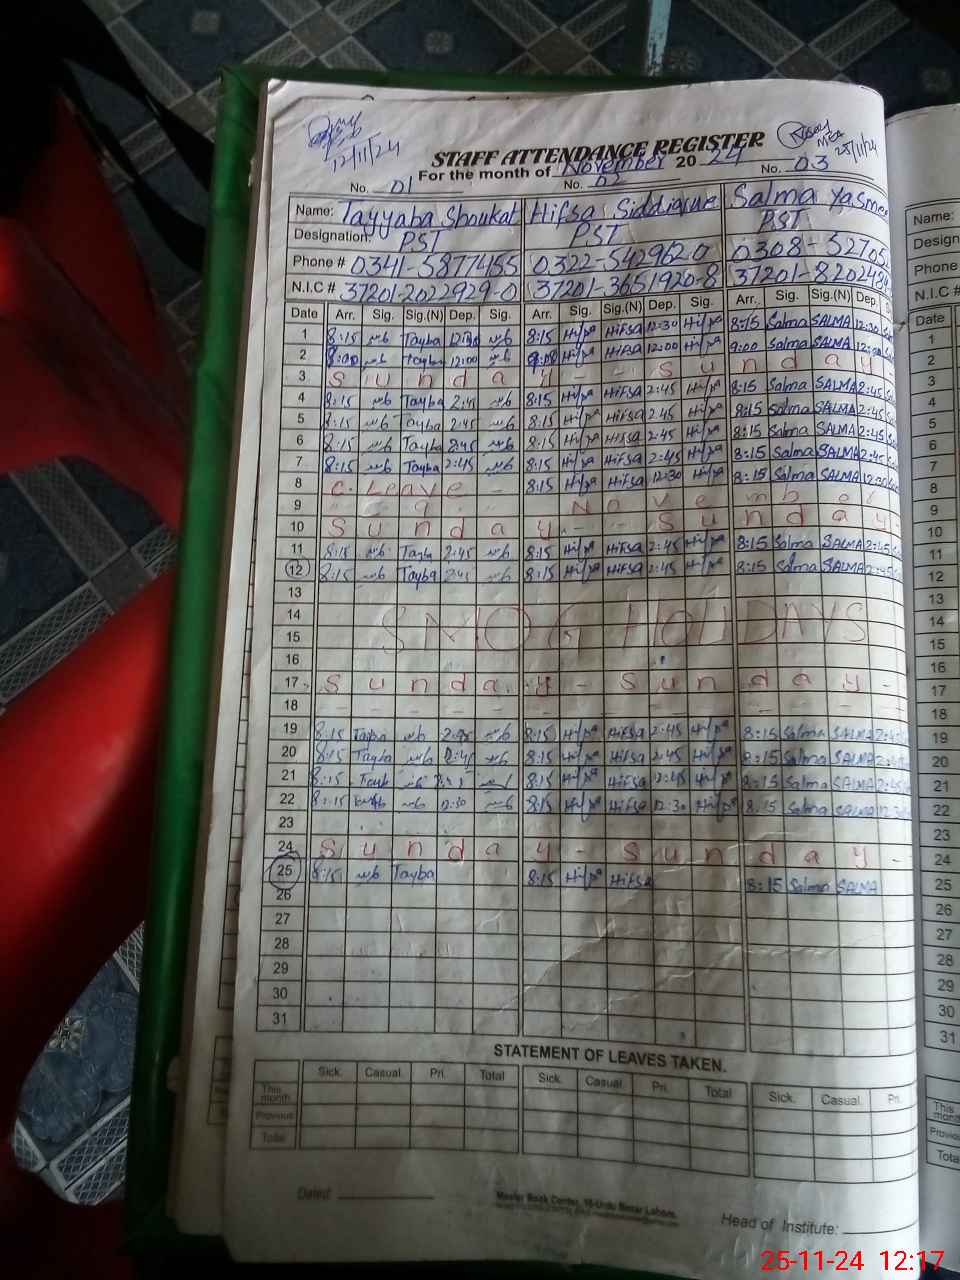 12/11/24
MEA
25/11/24
STAFF ATTENDANCE REGISTER
For the month of November 20 24
No. 01 No. 02 No. 03
Name: Tayyaba Shoukat Hifsa Siddique Salma Yasmee
Designation: PST PST PST
Phone # 0341-5877455 0322-5429620 0308-52705
N.I.C # 37201-2022929-0 37201-3651920-8 37201-8202484
Date Arr. Sig. Sig.(N) Dep. Sig. Arr. Sig. Sig.(N) Dep. Sig. Arr. Sig. Sig.(N) Dep.
1 8:15 Tayba 8:15 Hifsa HifSa 12:30 Hifsa 8:15 Salma SALMA 12:30
2 8:00 Tayba 12:00 Hifsa HifSa 12:00 Hifsa 9:00 Salma SALMA
3 Sunday - - Sunday
4 8:15 Tayba 2:45 8:15 Hifsa HifSa 2:45 Hifsa 8:15 Salma SALMA 2:45
5 8:15 Tayba 2:45 8:15 Hifsa HifSa 2:45 Hifsa 8:15 Salma SALMA 2:45
6 8:15 Tayba 2:45 8:15 Hifsa HifSa 2:45 Hifsa 8:15 Salma SALMA 2:45
7 8:15 Tayba 2:45 8:15 Hifsa HifSa 2:45 Hifsa 8:15 Salma SALMA 2:45
8 C. Leave - 8:15 Hifsa HifSa 12:30 Hifsa 8:15 Salma SALMA 12:30
9 November
10 Sunday - - Sunday -
11 8:15 Tayba 2:45 8:15 Hifsa HifSa 2:45 Hifsa 8:15 Salma SALMA 2:45
12 8:15 Tayba 2:45 8:15 Hifsa HifSa 2:45 Hifsa 8:15 Salma SALMA 2:45
13
14 SMOG HOLIDAYS
15
16
17 Sunday - Sunday -
18
19 8:15 Tayba 8:15 Hifsa HifSa 2:45 Hifsa 8:15 Salma SALMA
20 8:15 Tayba 8:15 Hifsa HifSa 2:45 Hifsa 8:15 Salma SALMA
21 8:15 8:15 Hifsa HifSa Hifsa 8:15 Salma SALMA
22 8:15 12:30 8:15 Hifsa HifSa 12:30 Hifsa 8:15 Salma SALMA
23
24 Sunday - Sunday -
25 8:15 Tayba 8:15 Hifsa HifSa 8:15 Salma SALMA
26
27
28
29
30
31
STATEMENT OF LEAVES TAKEN.
Sick. Casual. Pri. Total Sick. Casual. Pri. Total Sick. Casual. Pri.
This month
Previous
Total
Dated:
Master Book Center, 16-Urdu Bazar Lahore.
Head of Institute:
Name:
Design
Phone #
N.I.C #
Date
1
2
3
4
5
6
7
8
9
10
11
12
13
14
15
16
17
18
19
20
21
22
23
24
25
26
27
28
29
30
31
This
Previou
Tota
25-11-24 12:17